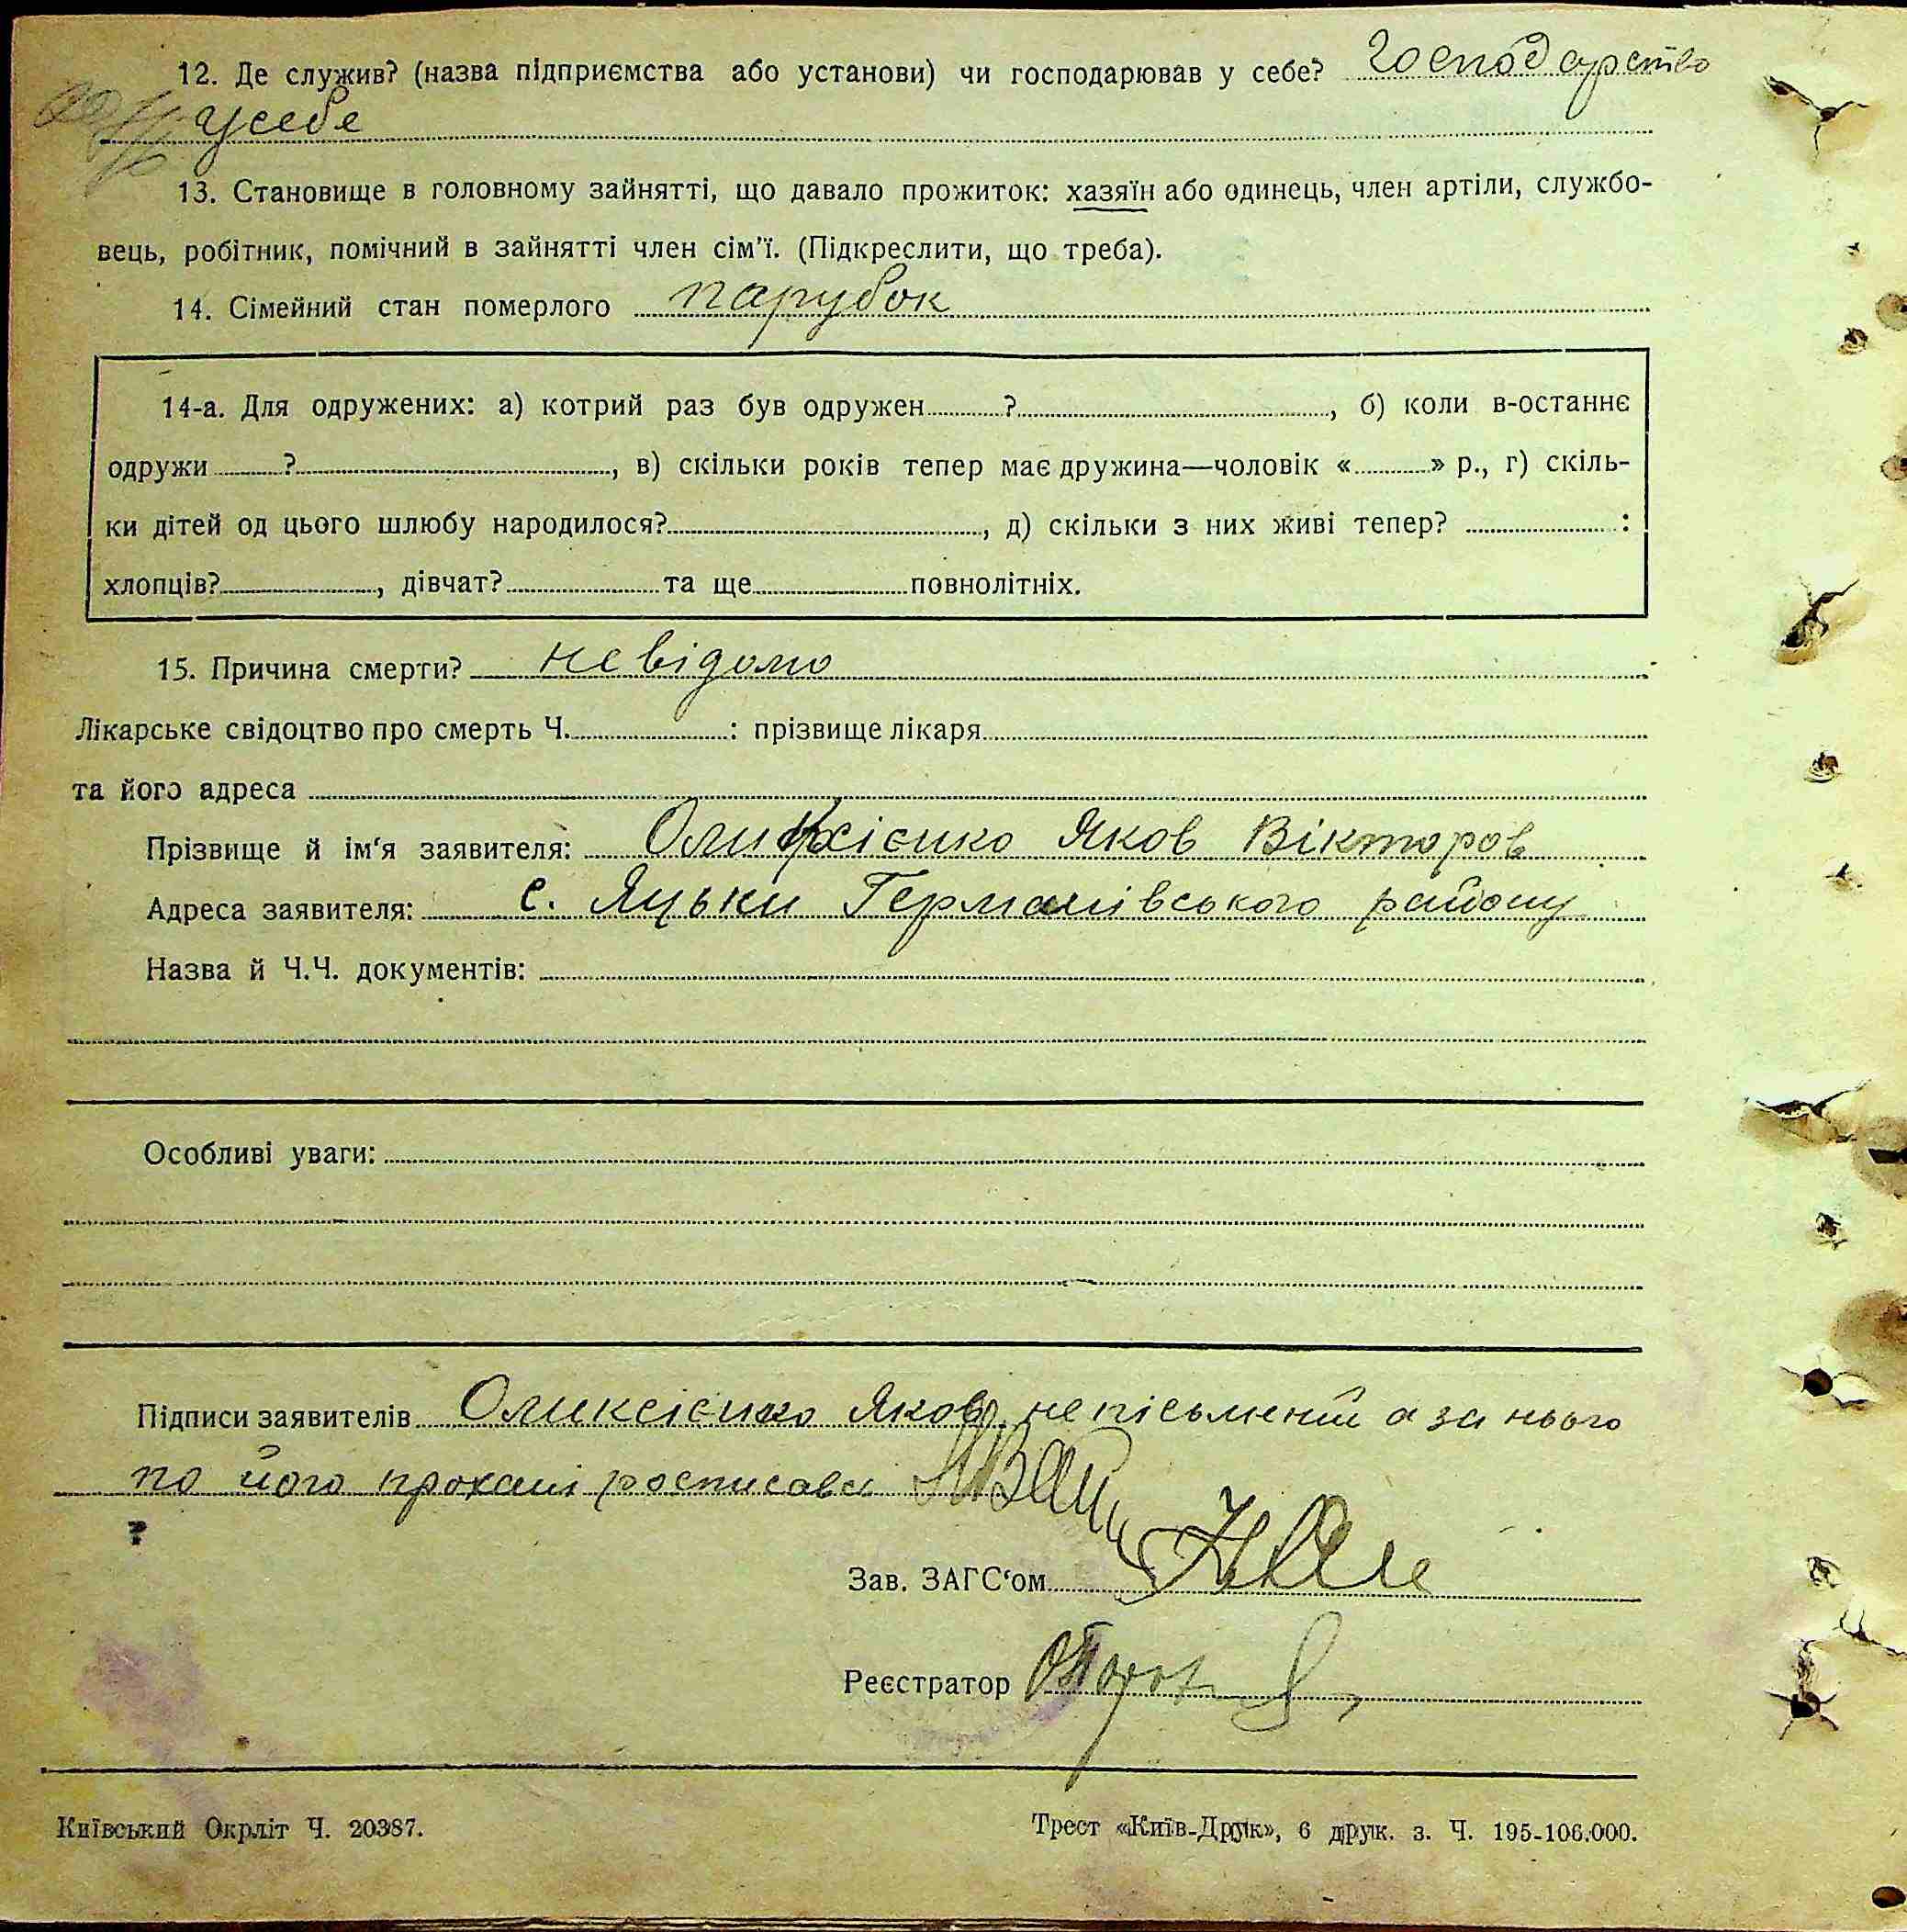 12. Де служив? (назва підприємства або установи) чи господарював у себе? господарство
усебе
13. Становище в головному зайнятті, що давало прожиток: хазяїн або одинець, член артіли, службо-
вець, робітник, помічний в зайнятті член сім'ї. (Підкреслити, що треба).
14. Сімейний стан померлого парубок
14-а. Для одружених: а) котрий раз був одружен ?, б) коли в-останнє
одружи ?, в) скільки років тепер має дружина—чоловік « » р., г) скіль-
ки дітей од цього шлюбу народилося?, д) скільки з них живі тепер? :
хлопців?, дівчат? та ще повнолітніх.
15. Причина смерти? невідомо
Лікарське свідоцтво про смерть Ч. : прізвище лікаря
та його адреса
Прізвище й ім'я заявителя: Оликсієнко Яков Вікторов
Адреса заявителя: с. Яцьки Германівського району
Назва й Ч.Ч. документів:
Особливі уваги:
Підписи заявителів Оликсієнко Яков непісьмений а за нього
по його прохані росписався
?
Зав. ЗАГС'ом
Реєстратор
Київський Окрліт Ч. 20387.
Трест «Київ-Друк», 6 друк. з. Ч. 195-106.000.